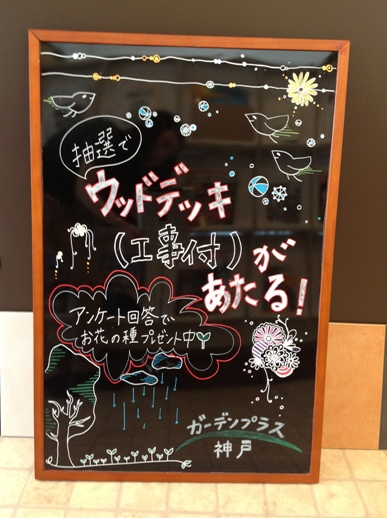 抽選で
ウッドデッキ
(工事付)が
あたる!
アンケート回答で、
お花の種プレゼント中
ガーデンプラス
神戸